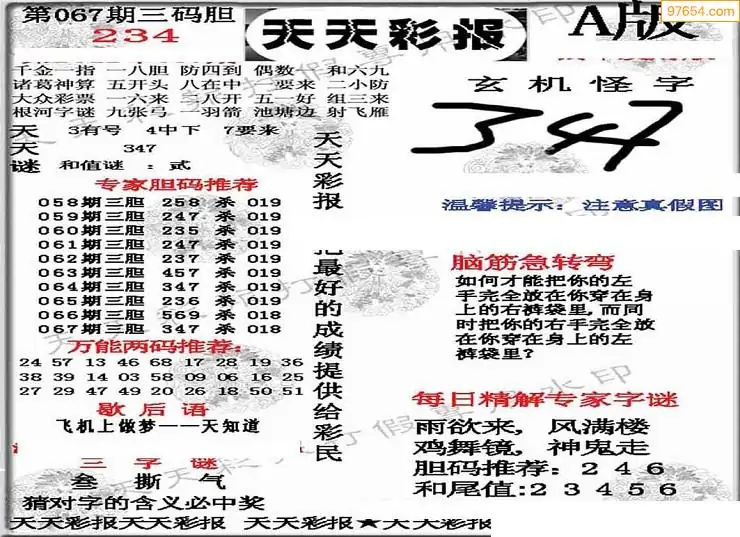 第067期三码胆
234
天天彩报
A版
97654.com
千金一指 一八胆 防四到 偶数 和六九
诸葛神算 五开头 八在中 一要来 二小防
大众彩票 一六来 三八开 五一好 组三来
根河字谜 九张弓 一羽箭 池塘边 射飞雁
天 3有号 4中下 7要来
天 347
谜 和值谜 : 贰
玄机怪字
347
天天彩报
把最好的成绩提供给彩民
温馨提示: 注意真假图
专家胆码推荐
058期三胆 258 杀 019
059期三胆 247 杀 019
060期三胆 235 杀 019
061期三胆 247 杀 019
062期三胆 237 杀 019
063期三胆 457 杀 019
064期三胆 347 杀 019
065期三胆 236 杀 019
066期三胆 569 杀 018
067期三胆 347 杀 018
万能两码推荐:
24 57 13 46 68 17 28 19 36
38 39 14 03 58 09 06 16 25
27 29 47 49 20 26 18 50 51
歇后语
飞机上做梦——天知道
三字谜
叁 撕 气
猜对字的含义必中奖
脑筋急转弯
如何才能把你的左
手完全放在你穿在身
上的右裤袋里,而同
时把你的右手完全放
在你穿在身上的左
裤袋里?
每日精解专家字谜
雨欲来, 风满楼
鸡舞镜, 神鬼走
胆码推荐: 2 4 6
和尾值:2 3 4 5 6
天天彩报天天彩报 天天彩报★天天彩报